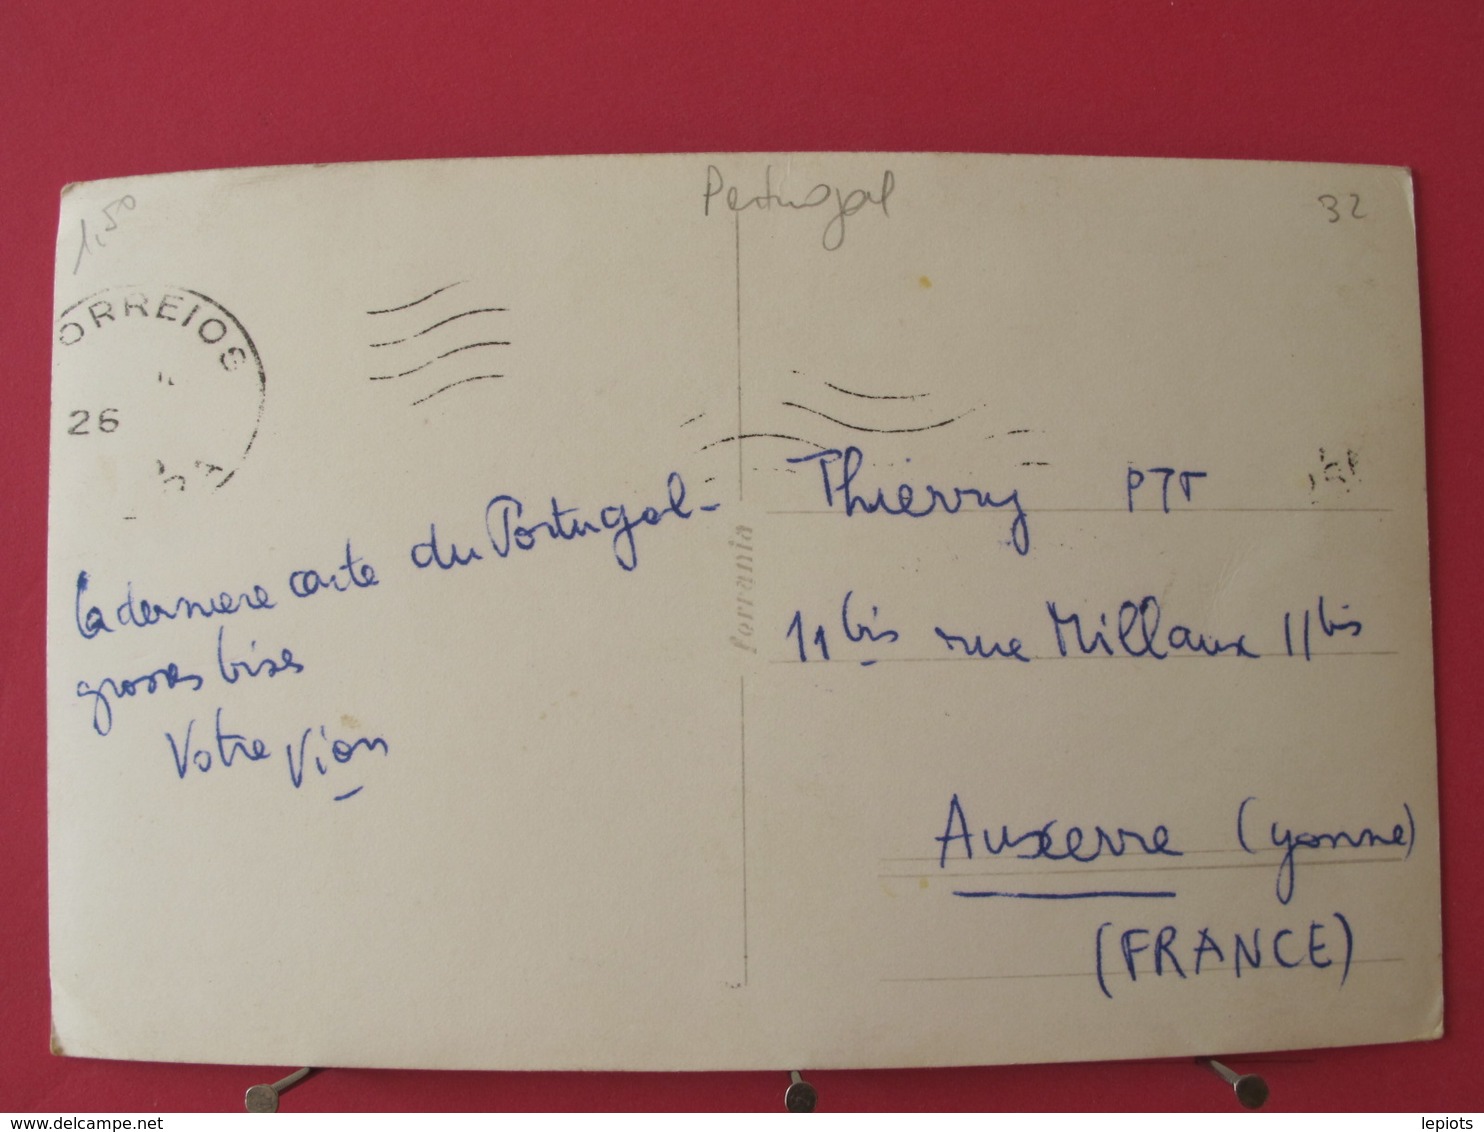 Portugal
32
1,50
CORREIOS
26
la derniere carte du Portugal -
grosses bises
Votre Vion
ferrania
Thierry PTT
11 bis rue Millaux 11 bis
Auxerre (Yonne)
(FRANCE)
www.delcampe.net
lepiots